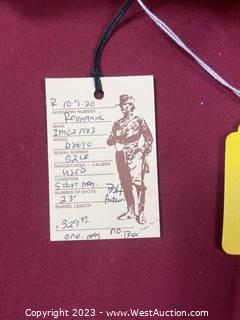 R 10-9-20
INVENTORY NUMBER
Romania
MAKE
IMG2 1983
MODEL
D8690
SERIAL NUMBER
Q2LR
GAUGE/CHOKE - CALIBER
USED
CONDITION
5 shot mag.
NUMBER OF SHOTS
23"
BARREL LENGTH
$329
one mag no Box
Copyright 2023 - www.WestAuction.com